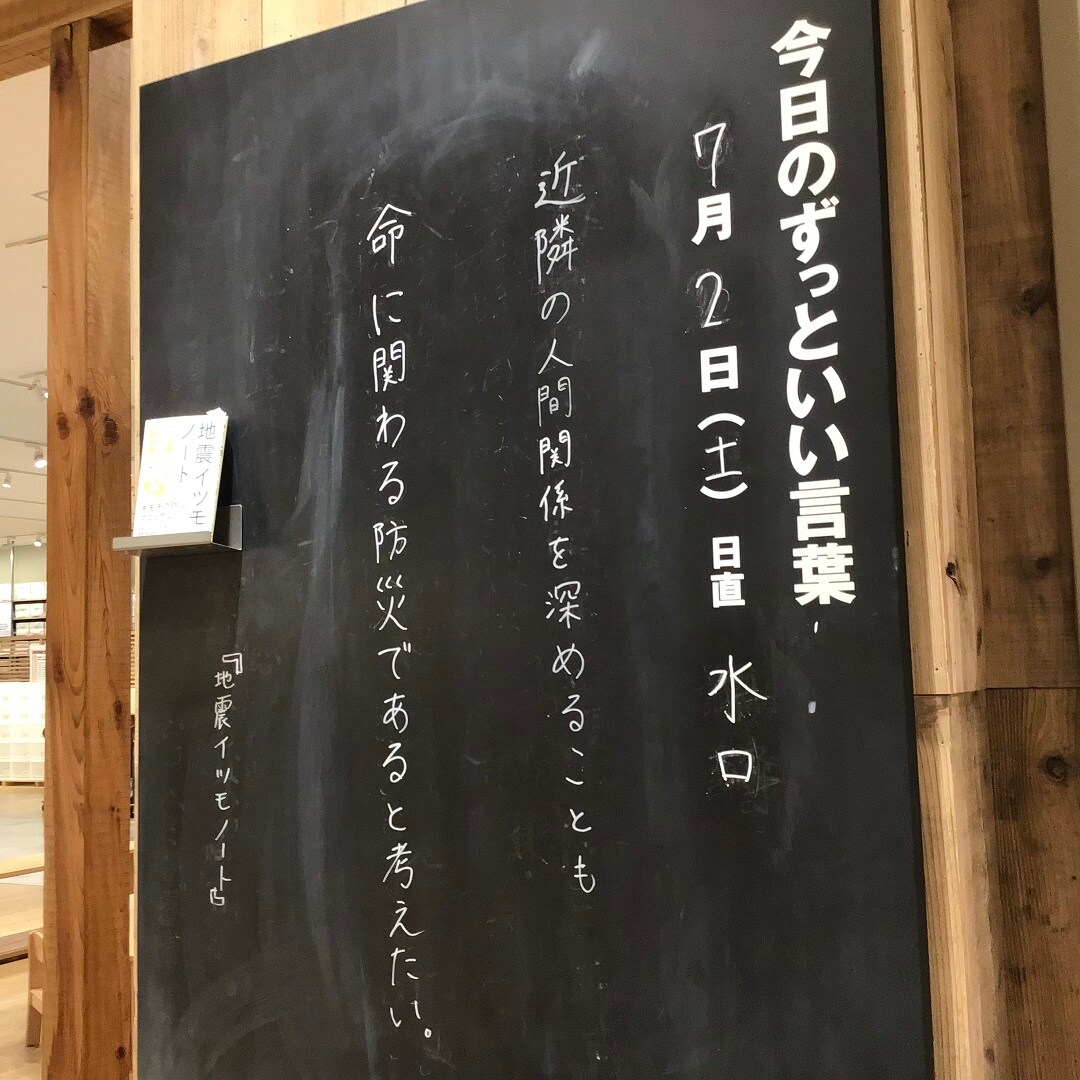 今日のずっといい言葉
7月2日(土) 日直 水口
近隣の人間関係を深めることも
命に関わる防災であると考えたい。
『地震イツモノート』
地震イツモ
ノート